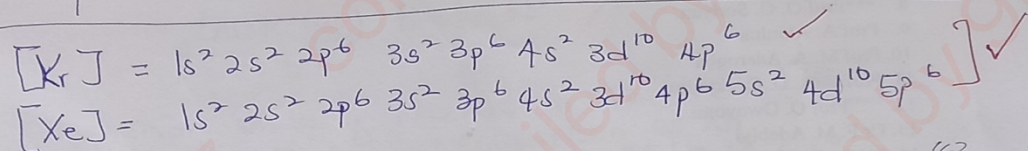 [Kr] = 1s² 2s² 2p⁶ 3s² 3p⁶ 4s² 3d¹⁰ 4p⁶ ✓
[Xe] = 1s² 2s² 2p⁶ 3s² 3p⁶ 4s² 3d¹⁰ 4p⁶ 5s² 4d¹⁰ 5p⁶ ] ✓